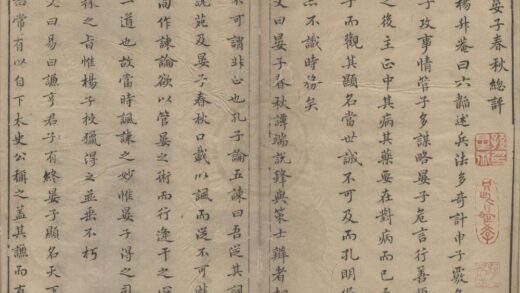 晏子春秋總評
楊升菴曰六韜述兵法多奇計申子覈名
子攻事情管子多謀略晏子危言行善
之後主正中其病其藥要在對病而已
子而觀其顯名當世誠不可及而孔明
不識時務矣
又曰晏子春秋譚端說鋒與策士辯者
不可謂非正也孔子論五諫曰吾從其諷
說苑及晏子春秋口載以諷而從不可
間作諫論欲以管晏之術而行逢干之心
一道也故當時諷諫之妙惟晏子得之司
林之旨惟楊子校獵得之並垂不朽
曰易曰謙亨君子有終晏子顯名天下
常有以自下太史公稱之蓋其謙而有